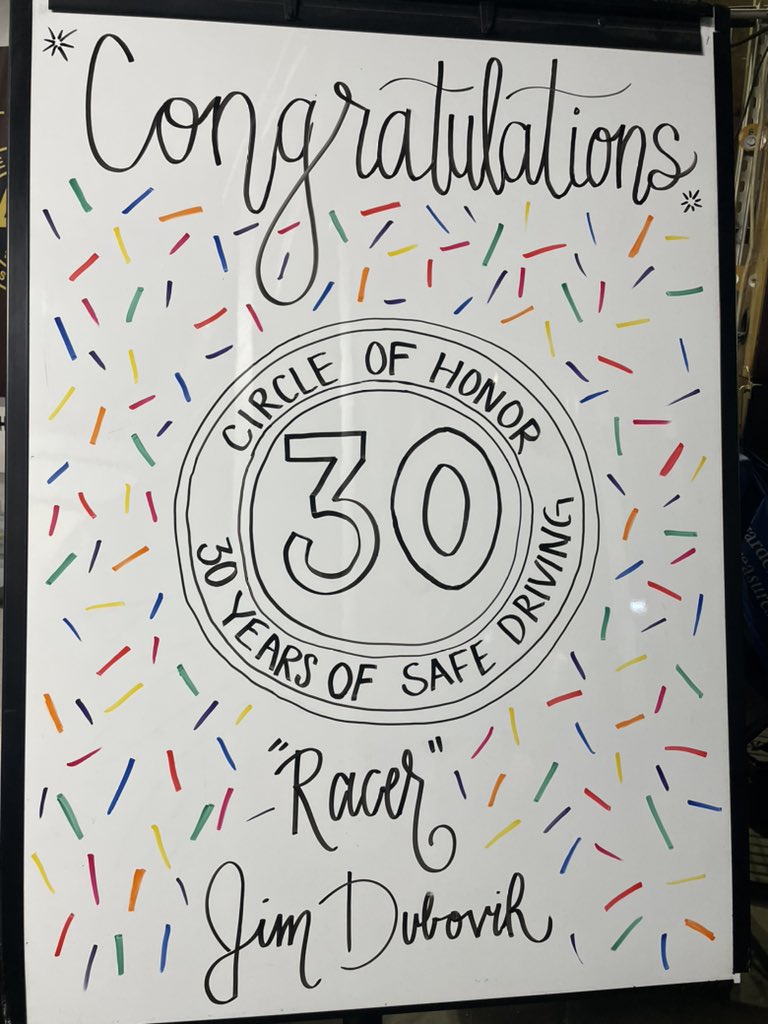 Congratulations
CIRCLE OF HONOR
30
30 YEARS OF SAFE DRIVING
"Racer"
Jim Dubovik